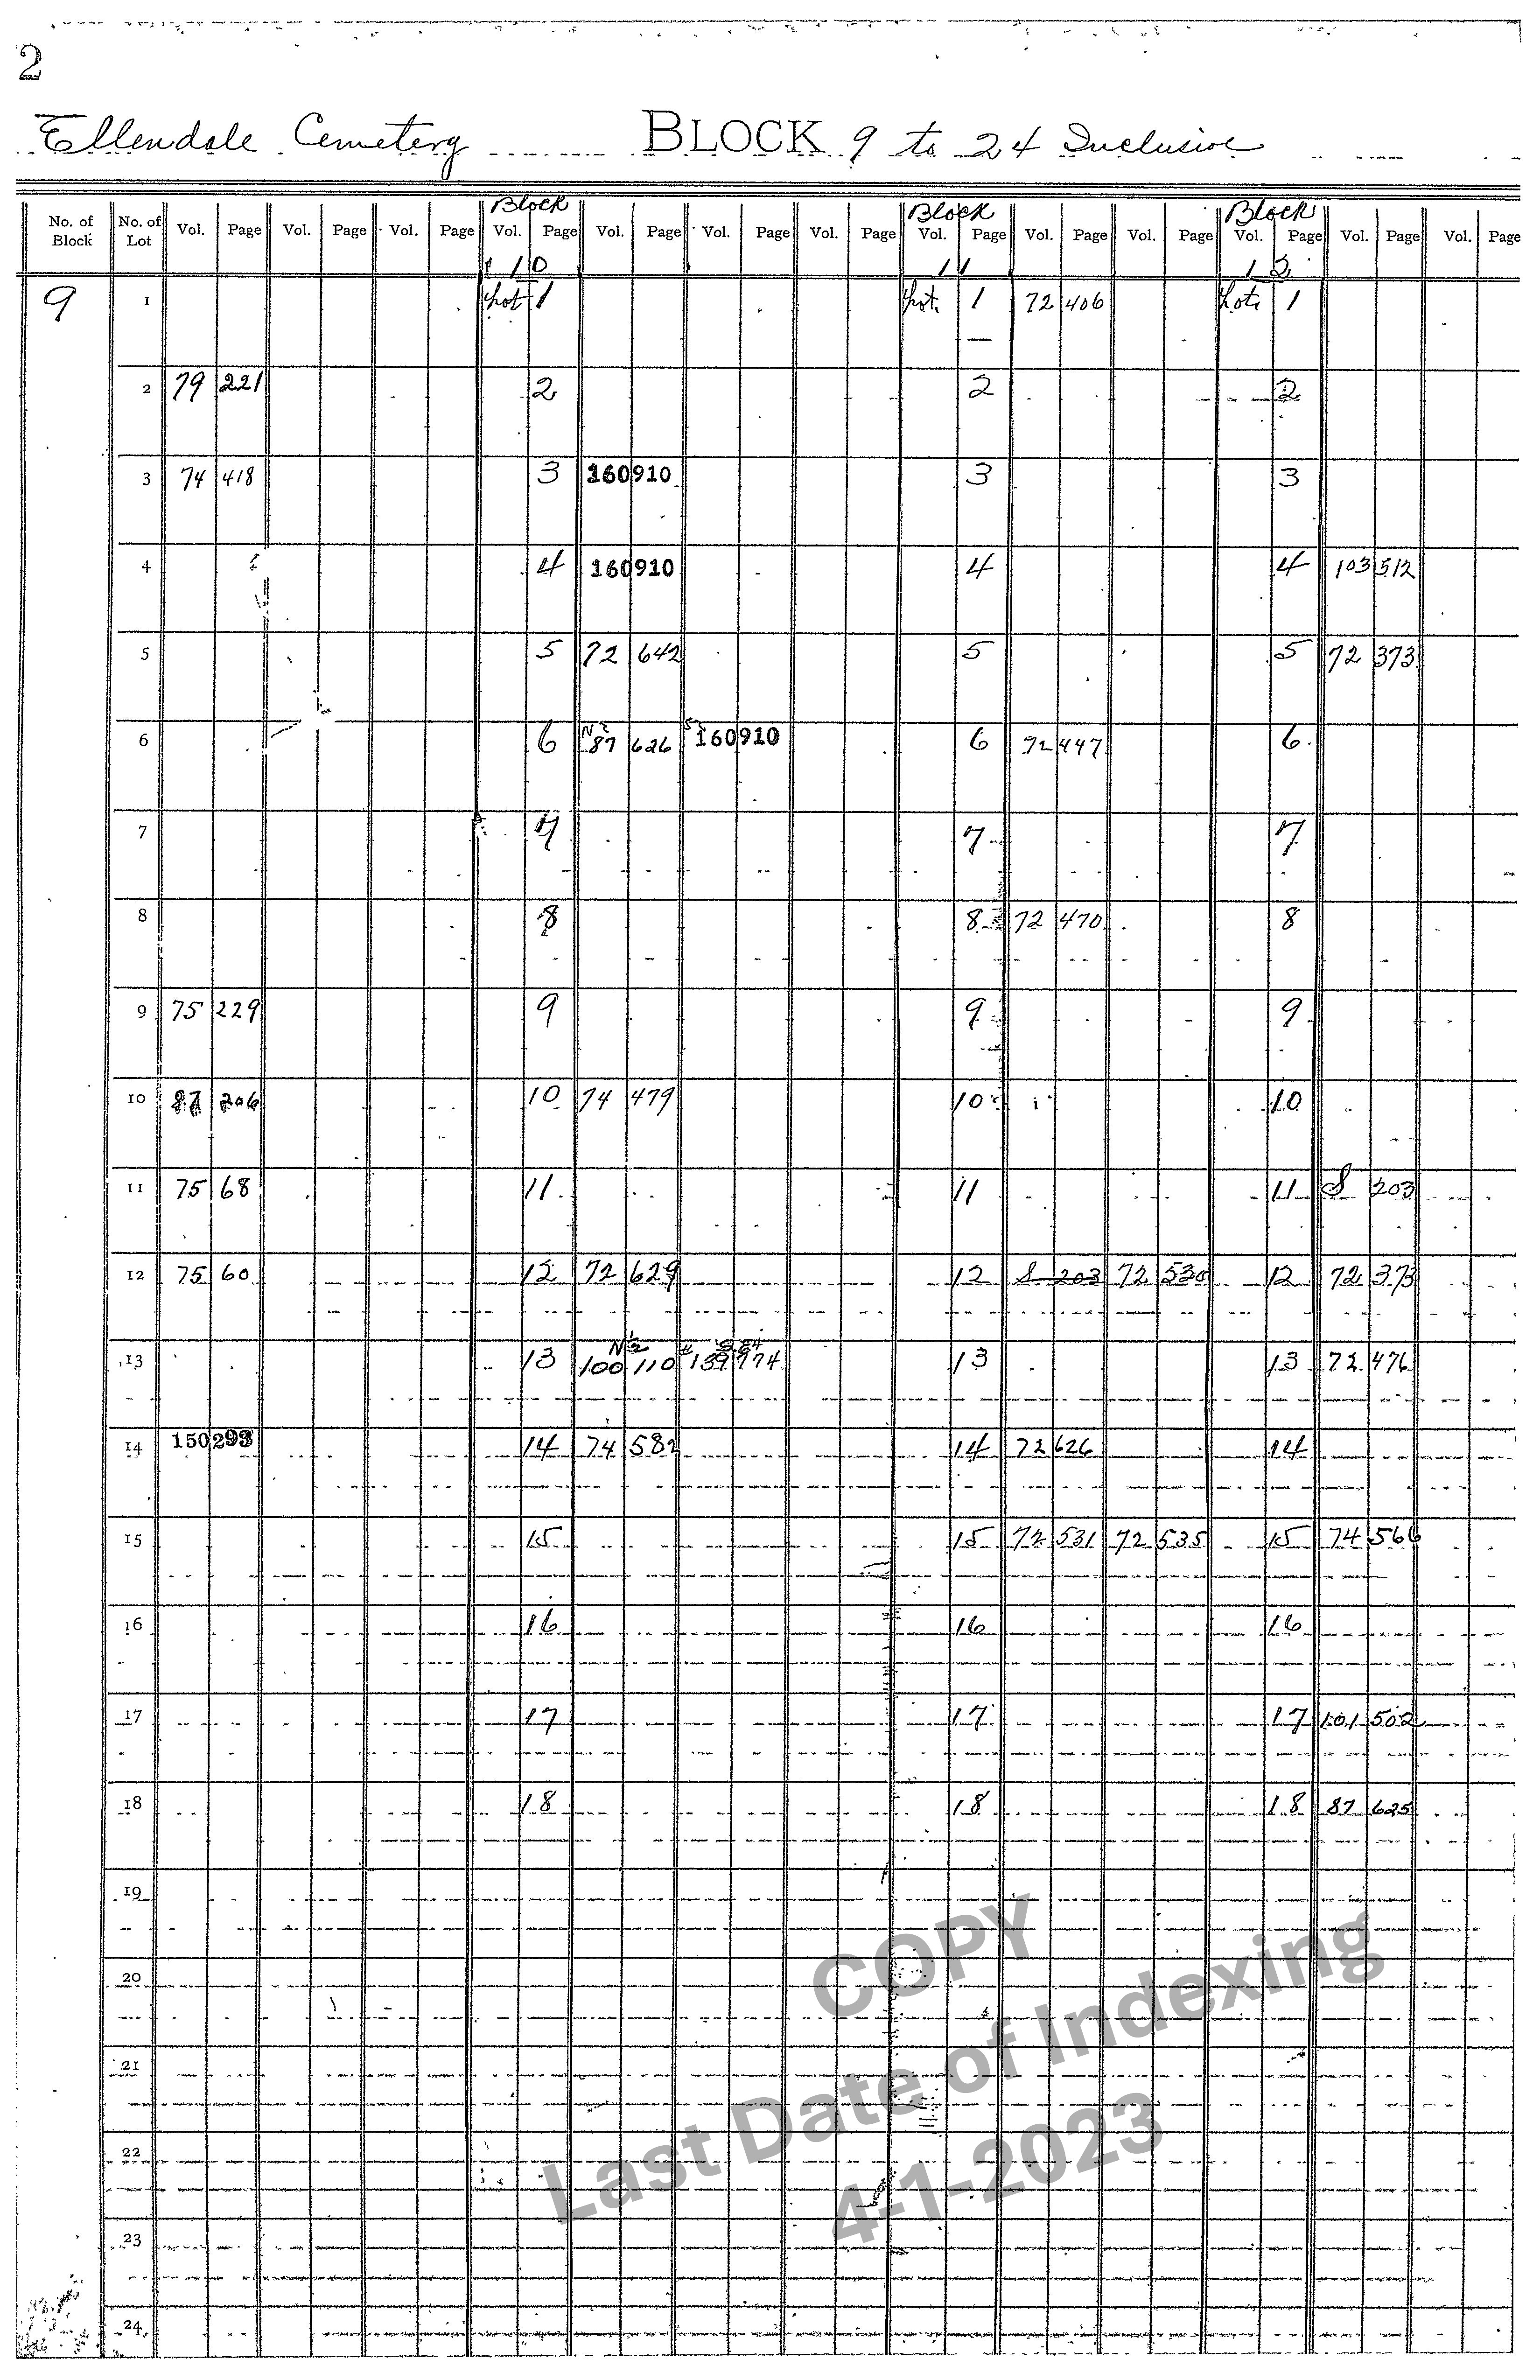 2
Ellendale Cemetery BLOCK 9 to 24 Inclusive
Block Block Block
No. of Block No. of Lot Vol. Page Vol. Page Vol. Page Vol. Page Vol. Page Vol. Page Vol. Page Vol. Page Vol. Page Vol. Page Vol. Page Vol. Page Vol. Page
10 11 12
9 1 Lot 1 Lot 1 72 406 Lot 1
2 79 221 2 2 2
3 74 418 3 160910 3 3
4 4 160910 4 4 103 512
5 5 72 642 5 5 72 373
6 6 N 2 87 626 160910 6 72 447 6
7 7 7 7
8 8 8 72 470 8
9 75 229 9 9 9
10 87 206 10 74 479 10 10
11 75 68 11 11 11 S 203
12 75 60 12 72 629 12 S 203 72 530 12 72 373
N½
13 13 100 110 # 139974 13 13 72 476
14 150293 14 74 582 14 72 626 14
15 15 15 72 531 72 535 15 74 566
16 16 16 16
17 17 17 17 101 502
18 18 18 18 87 625
19
20
21
22
23
24
COPY
Last Date of Indexing
4-1-2023